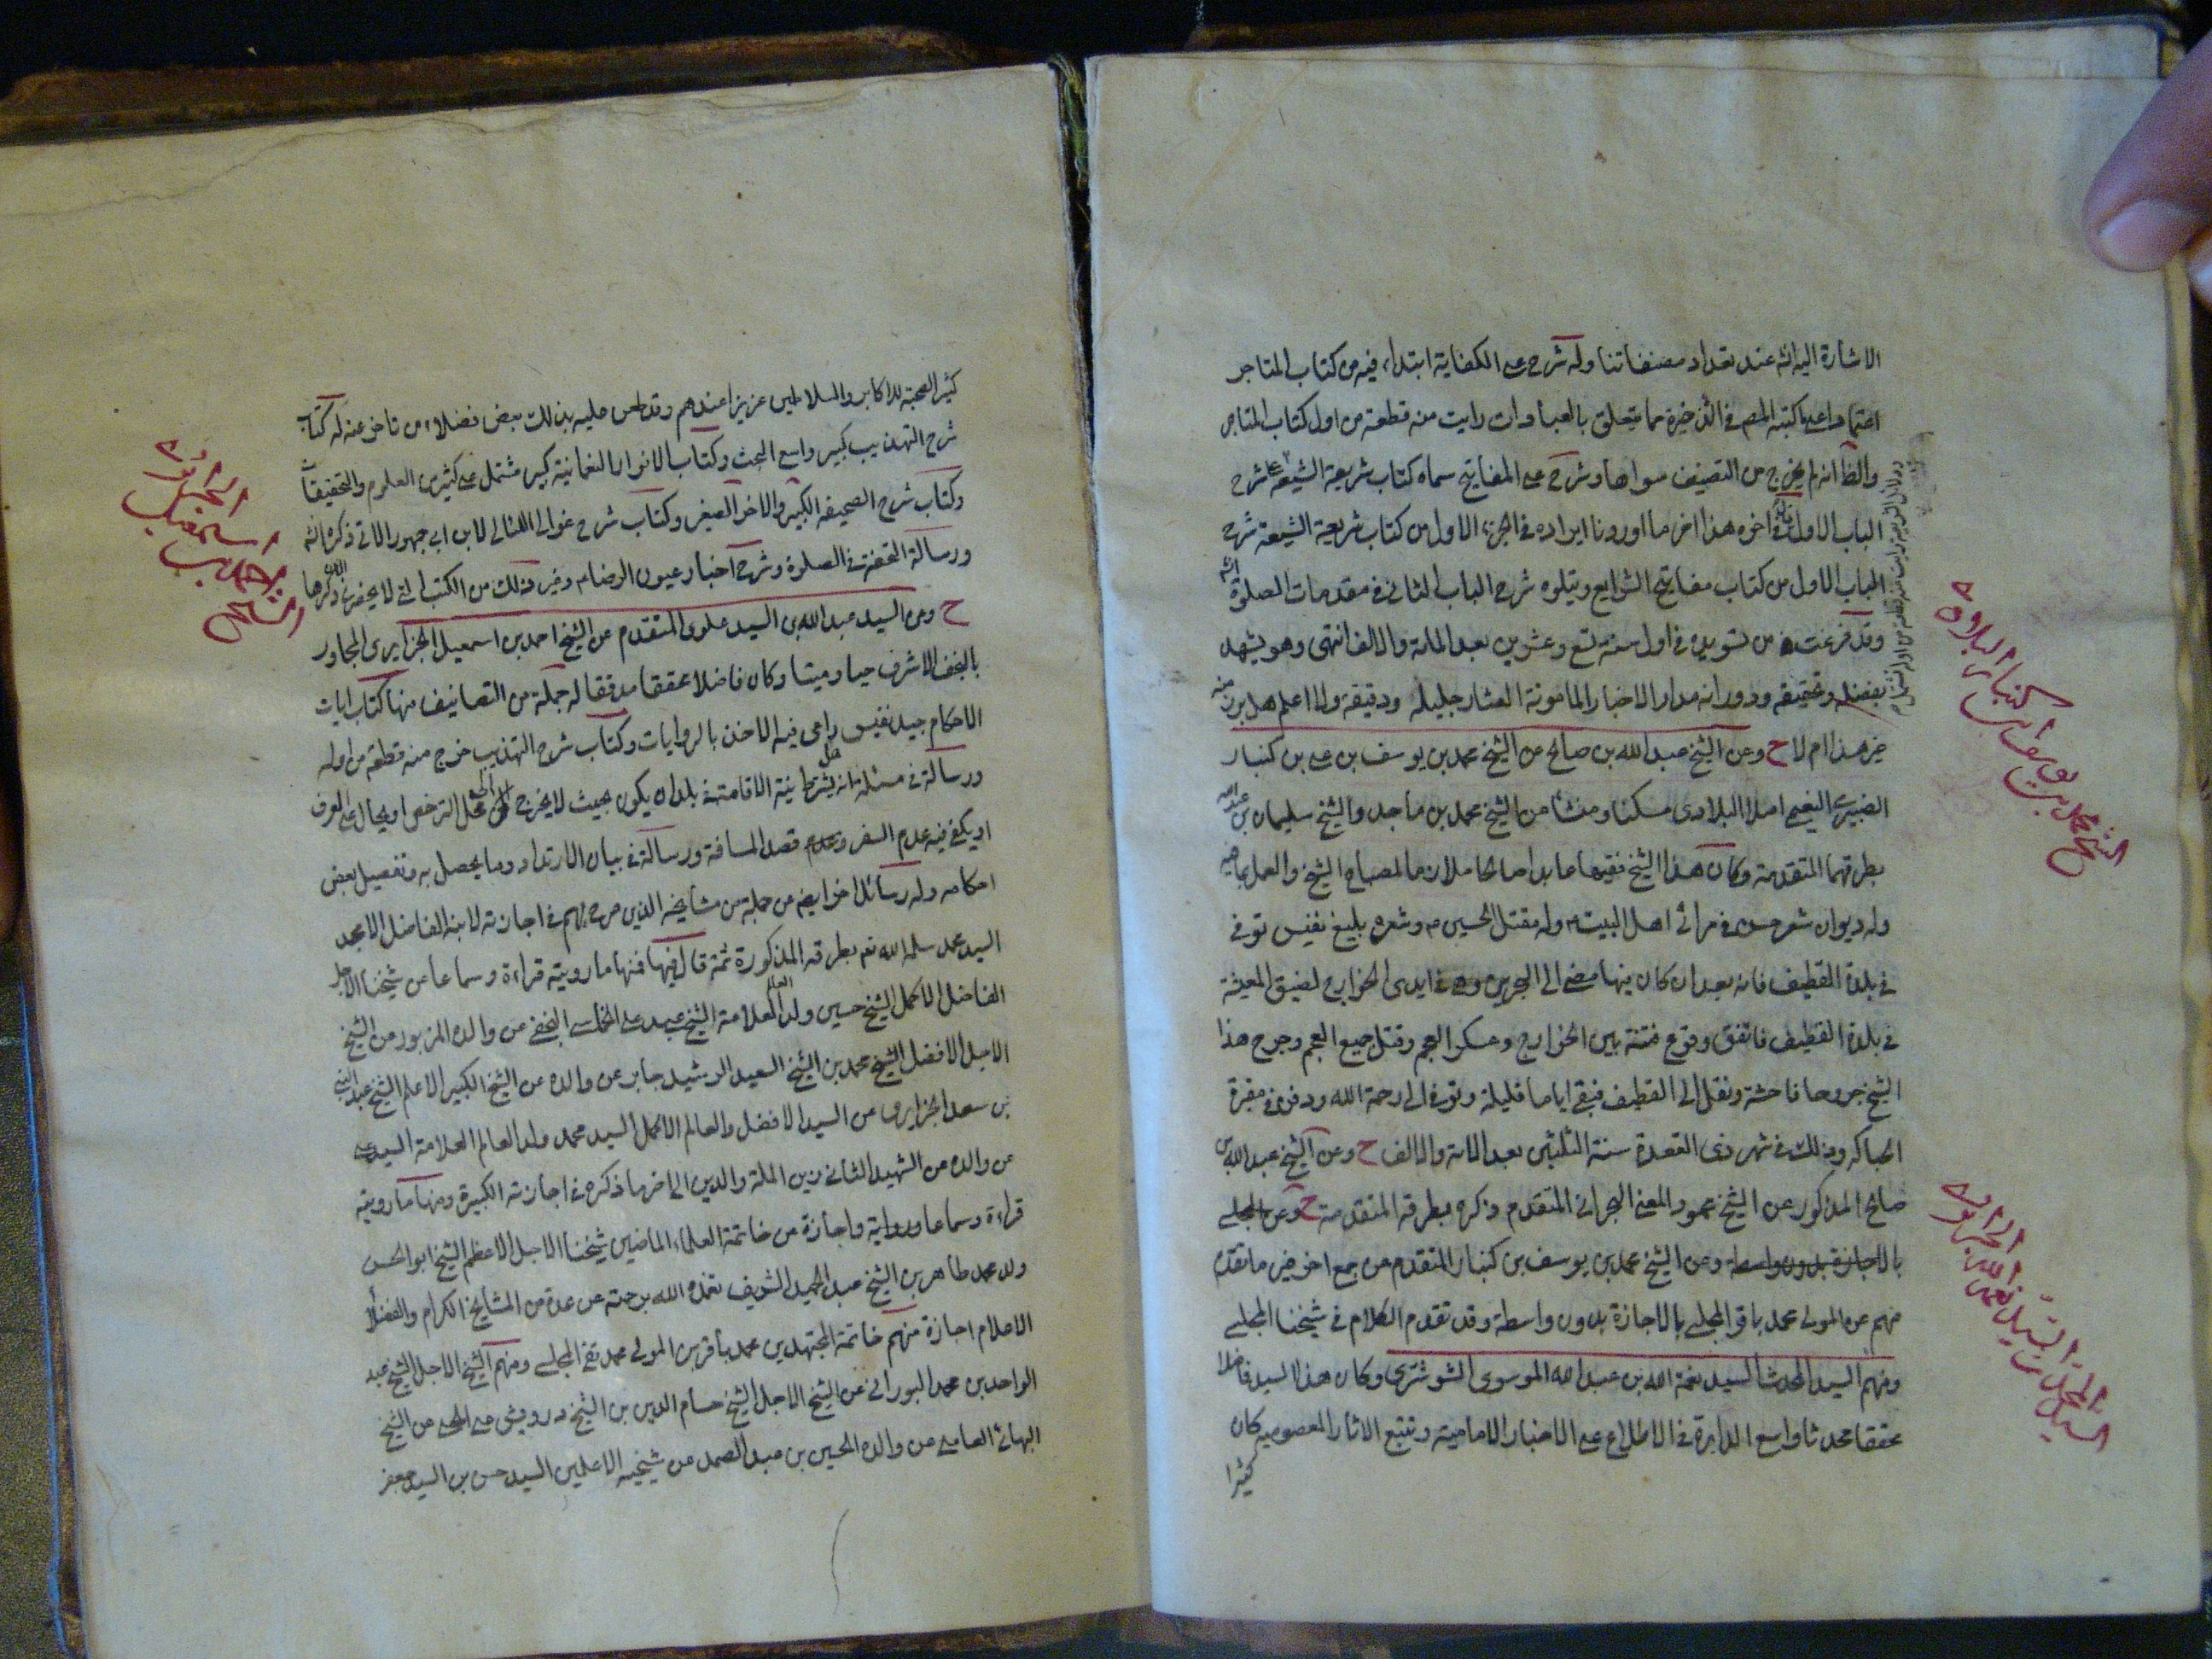 الاشارة اليه انشه عند تعداد مصنفاتنا وله شرح على الكفاية ابتداء فيه من كتاب المتاجر
اعتمادا على ما كتبه المصر في الذخيرة مما يتعلق بالعبادات رايت منه قطعة من اول كتاب المتاجر
والظاهر انه لم يخرج من التصنيف سواها وشرح على المفاتيح سماه كتاب شريعة الشيعة شرح
الباب الاول قال في اخره هذا اخر ما اوردنا ايراده في الجزء الاول من كتاب شريعة الشيعة شرح
الباب الاول من كتاب مفاتيح الشرايع ويتلوه شرح الباب الثاني في مقدمات الصلوة
وقد فرغت من تسويده في اول سنة تسع وعشرين بعد المائة والالف انتهى وهو يشهد
بفضله وتحقيقه ودورانه مدار الاخبار المامونة العثار جليله ودقيقه ولا اعلم هل برز منه
غير هذا ام لا ح وعن الشيخ عبد الله بن صالح عن الشيخ محمد بن يوسف بن علي بن كنبار
الضبيري النعيمي اصلا البلادى مسكنا ومنشأ من الشيخ محمد بن ماجد والشيخ سليمان بن عبد الله
بطرقهما المتقدمة وكان هذا الشيخ فقيها عابدا صالحا ملازما لمصباح الشيخ والعمل بما فيه
وله ديوان شعر حسن في مراثي اهل البيت وله مقتل الحسين ع وشعره بليغ نفيس توفي
في بلدة القطيف فانه بعد ان كان فيها مضى الى البحرين وهي في ايدى الخوارج لضيق المعيشة
في بلدة القطيف فاتفق وقوع فتنة بين الخوارج وعسكر العجم وقتل جميع العجم وجرح هذا
الشيخ جروحا فاحشة ونقل الى القطيف فبقي اياما قليلة وتوفى الى رحمة الله ودفن في مقبرة
الحباكه وذلك في شهر ذى القعدة سنة الثلثين بعد المائة والالف ح وعن الشيخ عبد الله بن
صالح المذكور عن الشيخ محمود المعني البحراني المتقدم ذكره بطرقه المتقدمة ح وعن المجلسي
بالاجازة بدون واسطة وعن الشيخ محمد بن يوسف بن كنبار المتقدم عن جمع اخر غير ما تقدم
منهم عن المولى محمد باقر المجلسي بالاجازة بدون واسطة وقد تقدم الكلام في شيخنا المجلسي
ومنهم السيد المحدث السيد نعمة الله بن عبد الله الموسوى الشوشترى وكان هذا السيد فاضلا
محققا محدثا واسع الدايرة في الاطلاع على الاخبار الامامية وتتبع الاثار المعصومية كان
كثيرا
الشيخ محمد بن يوسف بن كنبار البلادى
السيد المحدث السيد نعمة الله الجزايرى
كثير الصحبة للاكابر والسلاطين عزيزا عندهم وقد طعن عليه بذلك بعض فضلاء من تاخر عنه له كتاب
شرح التهذيب كبير واسع البحث وكتاب الانوار النعمانية كبير مشتمل على كثير من العلوم والتحقيقات
وكتاب شرح الصحيفه الكبير والاخر الصغير وكتاب شرح غوالى اللئالى لابن ابي جمهور الاتي ذكره انشه
ورسالة التحفة في الصلوة وشرح اخبار عيون الرضا ع وغير ذلك من الكتب التي لا يحضرني الان ذكرها
ح وعن السيد عبد الله بن السيد علوى المتقدم عن الشيخ احمد بن اسمعيل الجزايرى المجاور
بالنجف الاشرف حيا وميتا وكان فاضلا محققا مدققا له جملة من التصانيف منها كتاب ايات
الاحكام جيد نفيس راعى فيه الاخذ بالروايات وكتاب شرح التهذيب خرج منه قطعة من اوله
ورسالة في مسئلة انه هل يشترط نية الاقامة في بلد ان يكون بحيث لا يخرج الى محل الترخص او يحال على العرف
او يكفي فيه عدم السفر وعدم قصد المسافة ورسالة في بيان الارتداد وما يحصل به وتفصيل بعض
احكامه وله رسائل اخر ايضه عن جملة من مشايخه الذين صرح بهم في اجازته لابنه الفاضل الامجد
السيد محمد سلمه الله تعم بطرقه المذكورة ثمة قال فيها فمنها ما رويته قراءة وسماعا عن شيخنا الاجل
الفاضل الاكمل الشيخ حسين ولد العالم العلامة الشيخ عبد على الخمايسي النجفي عن والده المزبور عن الشيخ
الاجل الافضل الشيخ محمد بن الشيخ السعيد الرشيد جابر عن والده عن الشيخ الكبير الاعلم الشيخ عبد النبي
بن سعد الجزايرى عن السيد الافضل والعالم الاكمل السيد محمد ولد العالم العلامة السيد على
عن والده عن الشهيد الثاني زين الملة والدين الى اخر ما ذكره في اجازته الكبيرة ومنها ما رويته
قراءة وسماعا ورواية واجازة عن خاتمة العلماء الماضين شيخنا الاجل الاعظم الشيخ ابو الحسن
ولد محمد طاهر بن الشيخ عبد الحميد الشريف تغمده الله برحمته عن عدة من المشايخ الكرام والفضلاء
الاعلام اجازة منهم خاتمة المجتهدين محمد باقر بن المولى محمد تقي المجلسي ومنهم الشيخ الاجل الشيخ عبد
الواحد بن محمد البوراني عن الشيخ الاجل الشيخ حسام الدين بن الشيخ درويش على الحلي عن الشيخ
البهائي العاملى عن والده الحسين بن عبد الصمد عن شيخيه الاعلمين السيد حسن بن السيد جعفر
الشيخ احمد بن اسمعيل الجزايرى